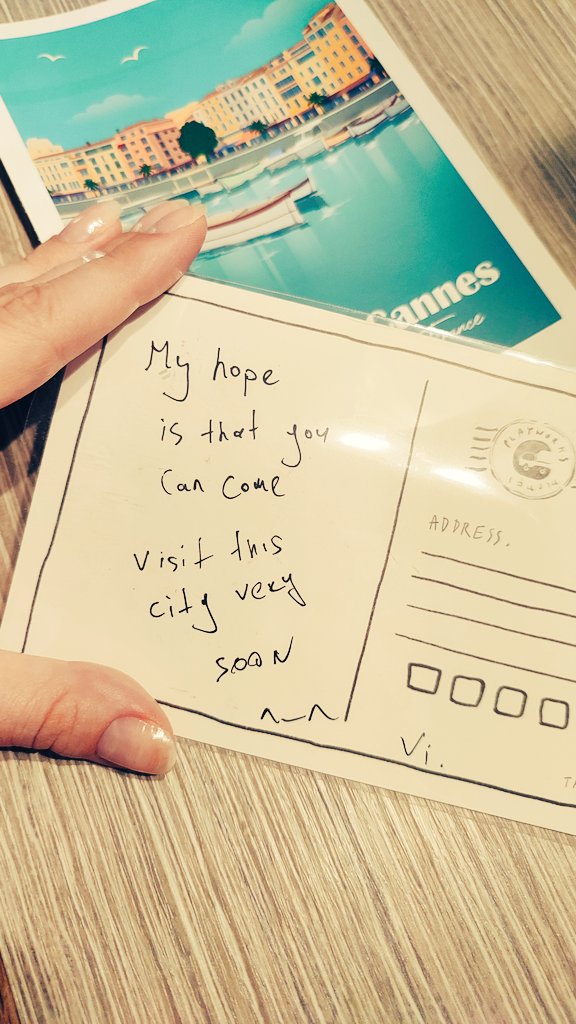 Cannes
France
My hope
is that you
can come
visit this
city very
soon
^_^
Vi.
ADDRESS.